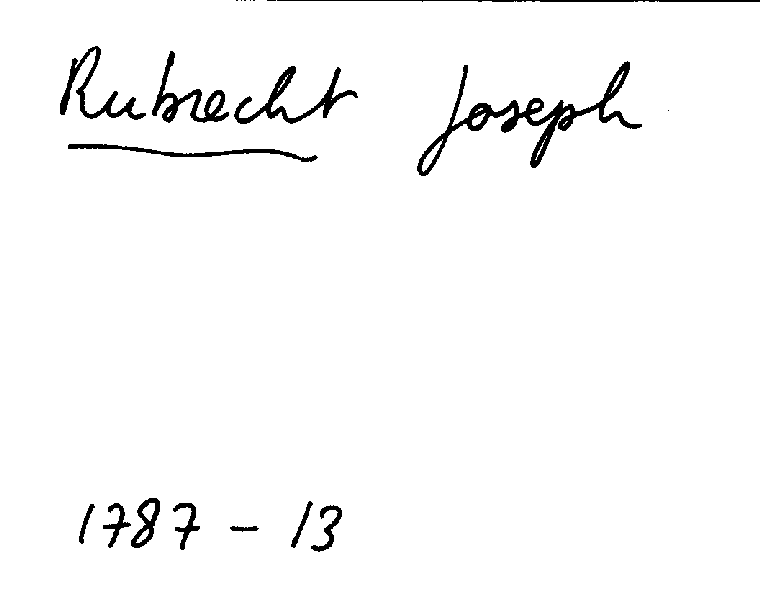 Rubrecht Joseph
1787 - 13